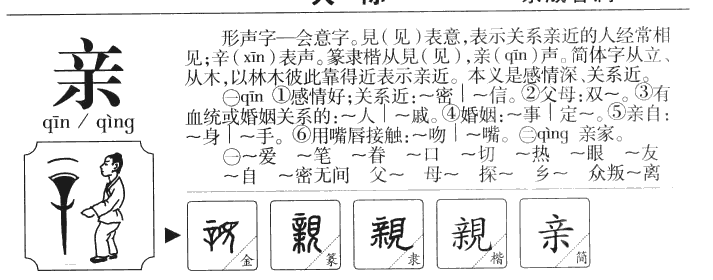 亲
qīn / qìng
形声字—会意字。見(见)表意,表示关系亲近的人经常相
见;辛(xīn)表声。篆隶楷从見(见),亲(qīn)声。简体字从立、
从木,以林木彼此靠得近表示亲近。本义是感情深、关系近。
㊀qīn ①感情好;关系近:~密│~信。②父母:双~。③有
血统或婚姻关系的:~人│~戚。④婚姻:~事│定~。⑤亲自:
~身│~手。⑥用嘴唇接触:~吻│~嘴。㊁qìng 亲家。
㊀~爱 ~笔 ~眷 ~口 ~切 ~热 ~眼 ~友
~自 ~密无间 父~ 母~ 探~ 乡~ 众叛~离
金 親 篆 親 隶 親 楷 亲 简